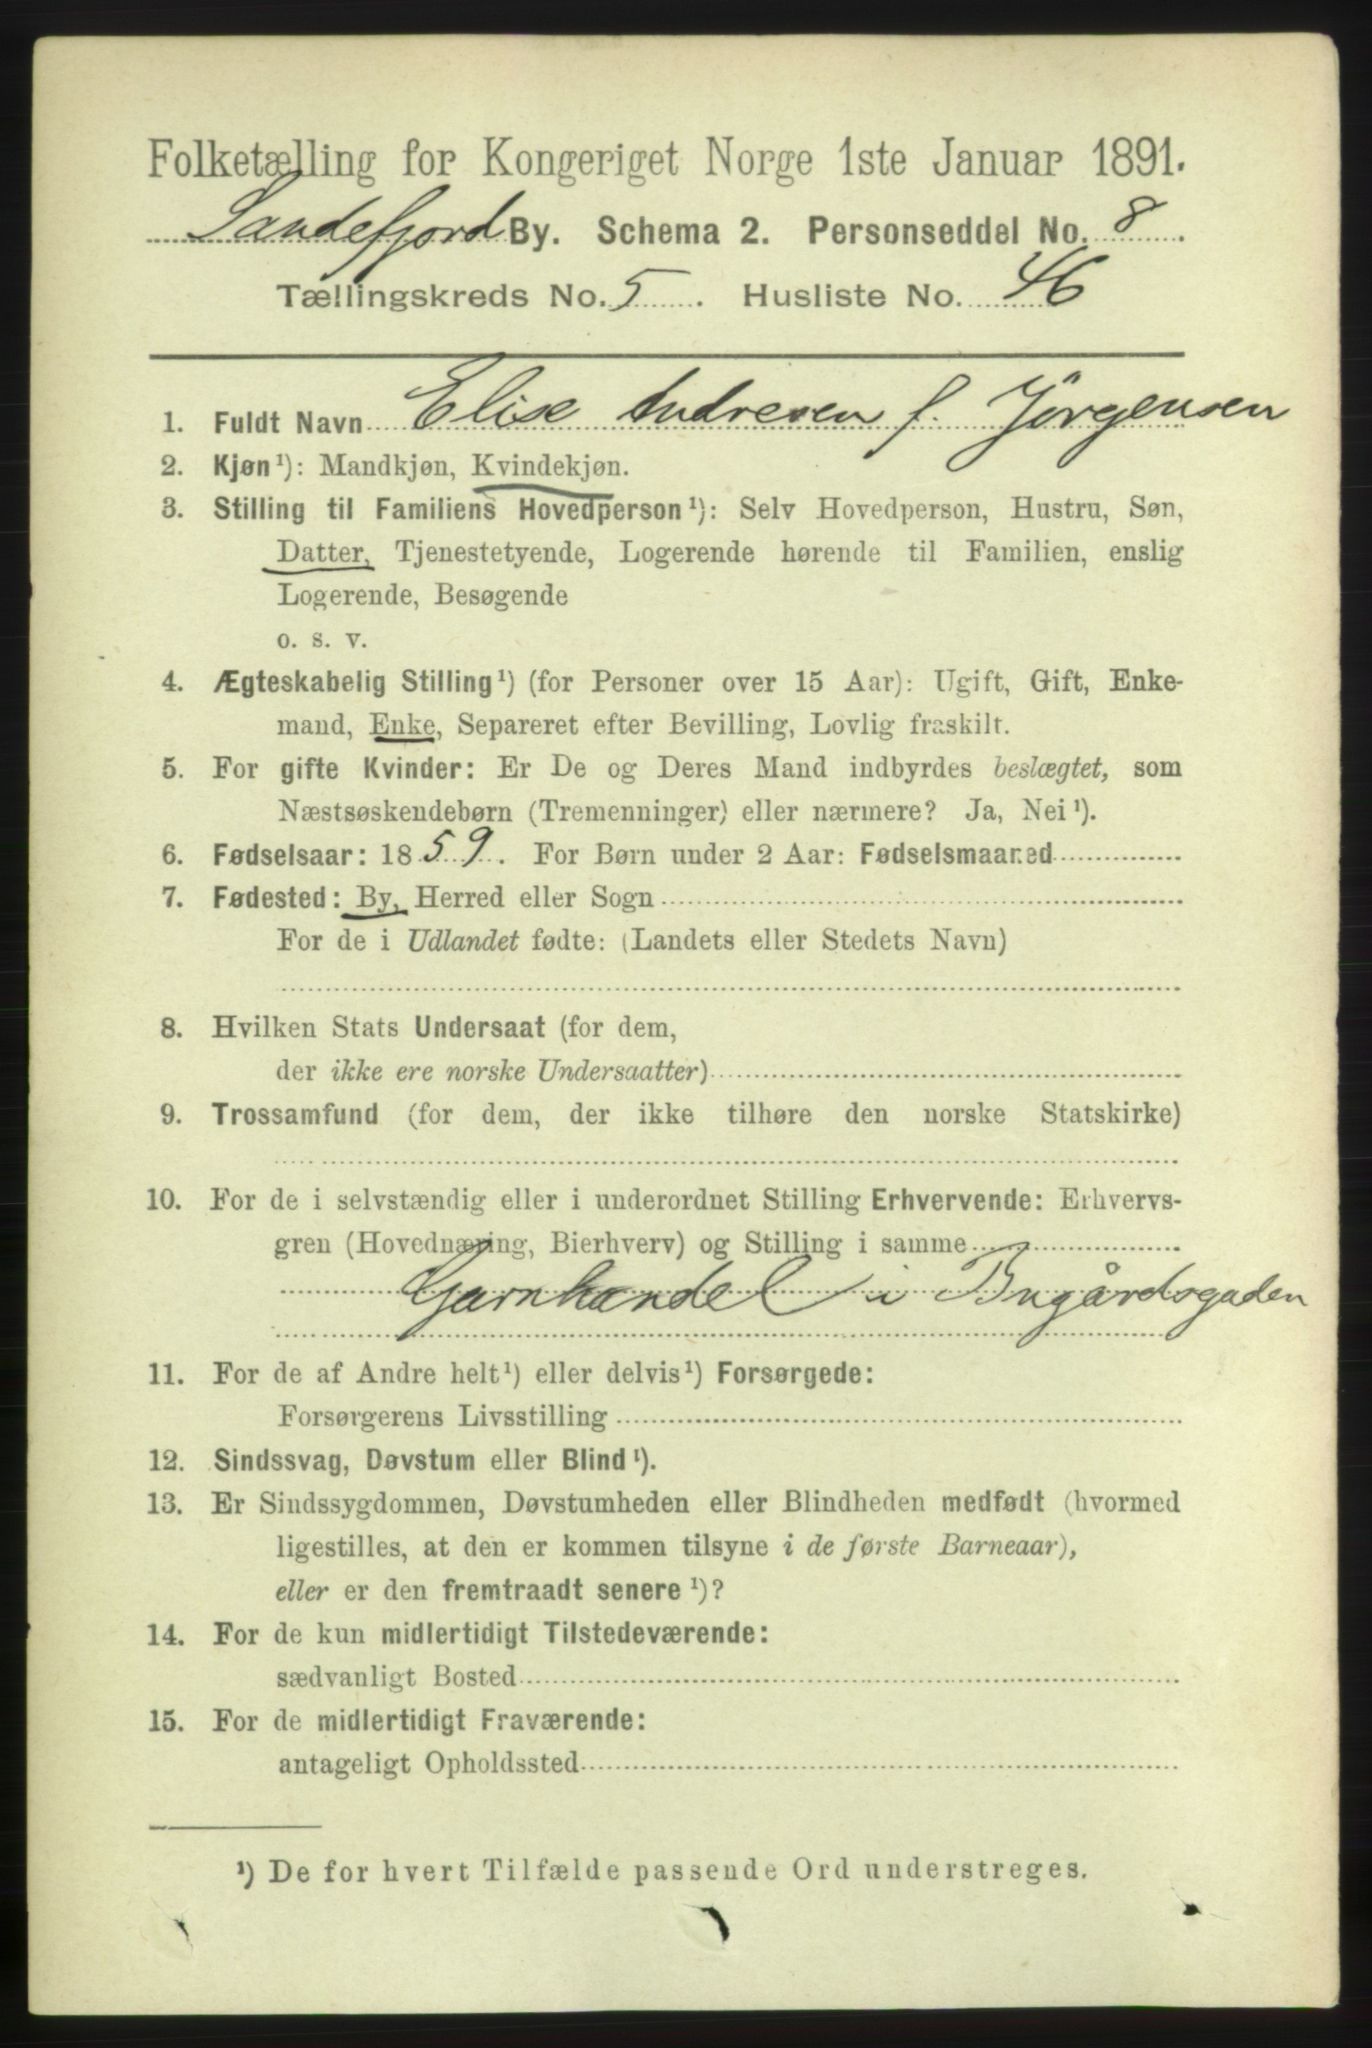 Folketælling for Kongeriget Norge 1ste Januar 1891.
Sandefjord By. Schema 2. Personseddel No. 8
Tællingskreds No. 5. Husliste No. 46
1. Fuldt Navn Elise Andresen f. Jörgensen
2. Kjøn¹): Mandkjøn, Kvindekjøn.
3. Stilling til Familiens Hovedperson¹): Selv Hovedperson, Hustru, Søn,
Datter, Tjenestetyende, Logerende hørende til Familien, enslig
Logerende, Besøgende
o. s. v.
4. Ægteskabelig Stilling¹) (for Personer over 15 Aar): Ugift, Gift, Enke-
mand, Enke, Separeret efter Bevilling, Lovlig fraskilt.
5. For gifte Kvinder: Er De og Deres Mand indbyrdes beslægtet, som
Næstsøskendebørn (Tremenninger) eller nærmere? Ja, Nei¹).
6. Fødselsaar: 1859. For Børn under 2 Aar: Fødselsmaaned
7. Fødested: By, Herred eller Sogn
For de i Udlandet fødte: (Landets eller Stedets Navn)
8. Hvilken Stats Undersaat (for dem,
der ikke ere norske Undersaatter)
9. Trossamfund (for dem, der ikke tilhøre den norske Statskirke)
10. For de i selvstændig eller i underordnet Stilling Erhvervende: Erhvervs-
gren (Hovednæring, Bierhverv) og Stilling i samme
Garnhandel i Bugårdsgaden
11. For de af Andre helt¹) eller delvis¹) Forsørgede:
Forsørgerens Livsstilling
12. Sindssvag, Døvstum eller Blind¹).
13. Er Sindssygdommen, Døvstumheden eller Blindheden medfødt (hvormed
ligestilles, at den er kommen tilsyne i de første Barneaar),
eller er den fremtraadt senere¹)?
14. For de kun midlertidigt Tilstedeværende:
sædvanligt Bosted
15. For de midlertidigt Fraværende:
antageligt Opholdssted
¹) De for hvert Tilfælde passende Ord understreges.